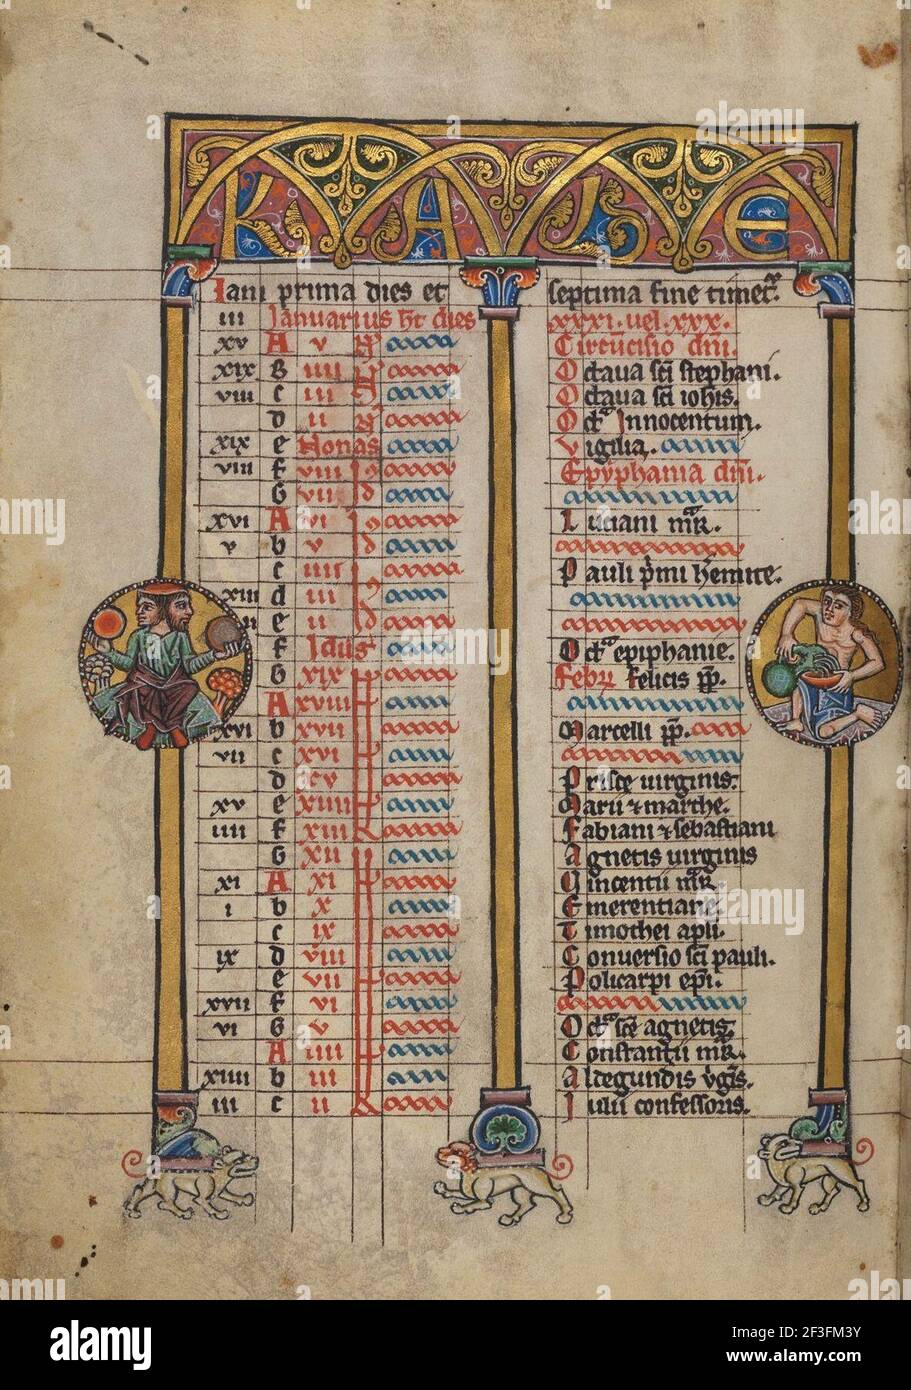 K A L E
Iani prima dies et septima fine timet.
iii Ianuarius ht dies xxxi. uel. xxx.
xv A v Circucisio dni.
xix B iiii Octaua sci stephani.
viii c iii Octaua sci iohis.
d ii Octa Innocentum.
xix e Nonas Vigilia.
viii f viii id Epyphania dni.
G vii id
xvi A vi id Luciani mr.
v b v id
c iiii id Pauli pmi hemite.
xiii d iii id
e ii id
f Idus Octa epiphanie.
G xix kl Febr. Felicis pp.
A xviii
xvi b xvii Marcelli pp.
vii c xvi
d xv Prisce uirginis.
xv e xiiii Marii & marthe.
iiii f xiii Fabiani & sebastiani
G xii Agnetis uirginis
xi A xi Vincentii mr.
i b x Emerentiane.
c ix Timothei apli.
ix d viii Conuersio sci pauli.
e vii Policarpi epi.
xvii f vi
vi G v Octa sce agnetis.
A iiii Constantii mr.
xiiii b iii Aldegundis vgis.
iii c ii kl Iulii confessoris.
alamy
Image ID: 2F3FM3Y
www.alamy.com